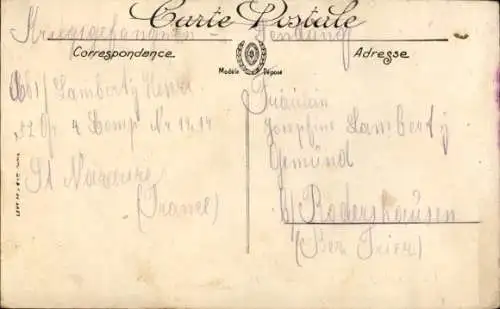 Carte Postale
Kriegsgefangenen - Sendung
Correspondance.
Adresse
Modèle Déposé
Lamberty
4 Comp Nr 1414
St Nazaire
(France)
Fräulein
Josephine Lamberty
Gemünd
b/ Rodershausen
(Bez Trier)